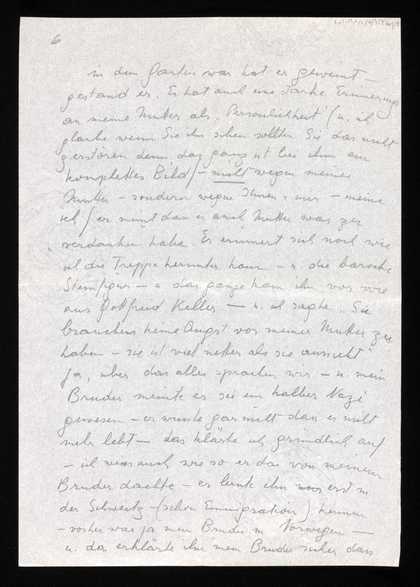 6
in dem Garten war hat er geweint –
gestand er. Er hat auch eine starke Erinnerung
an meine Mutter als „Persönlichkeit" (u. ich
glaube wenn Sie ihn sehen sollten Sie das nicht
zerstören denn das ganze ist bei ihm ein
komplettes Bild) – nicht wegen meiner
Mutter – sondern wegen Ihnen u. mir – meine
ich / er meint dass er auch Mutter was zu
verdanken habe. Er erinnert sich noch wie
ich die Treppe herunter kam – u. die barocke
Steinfigur – u. das ganze kam ihm vor wie
aus Gottfried Keller — u. ich sagte „Sie
brauchen keine Angst vor meiner Mutter zu
haben – sie ist viel netter als sie aussieht"
Ja, aber das alles sprachen wir – u. mein
Bruder meinte er sei ein halber Nazi
gewesen – er wusste gar nicht dass er nicht
mehr lebt — das klärte ich gründlich auf
– ich weiss auch wieso er das von meinem
Bruder dachte – er lernte ihn erst in
der Schweitz (schon Emmigration) kennen
– vorher war ja mein Bruder in Norwegen —
u. da erklärte ihm mein Bruder sicher dass